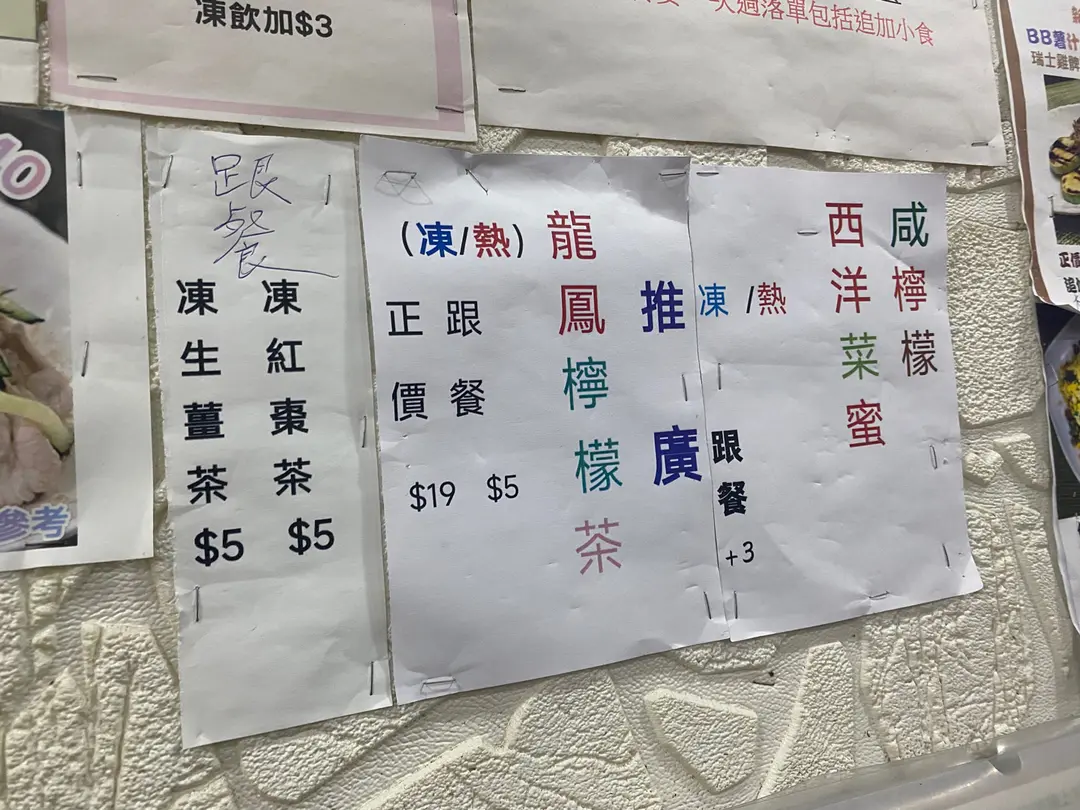 凍飲加$3
一次過落單包括追加小食
BB薯汁
瑞士雞
跟餐
凍紅棗茶$5
凍生薑茶$5
推廣
龍鳳檸檬茶
(凍/熱)
跟餐 $5
正價 $19
咸檸檬
西洋菜蜜
凍/熱
跟餐 +3
參考